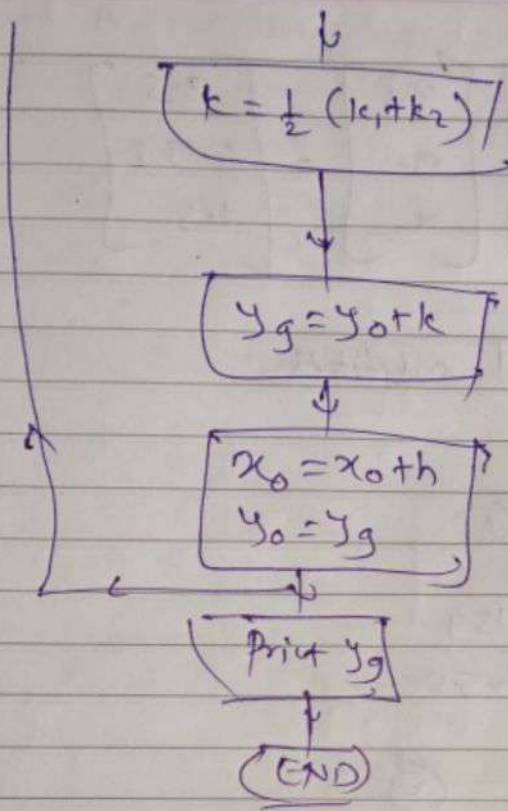 k = 1/2 (k₁+k₂)
y_g = y₀+k
x₀ = x₀+h
y₀ = y_g
Print y_g
END